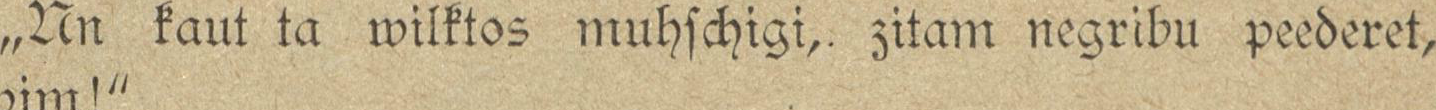 „Un kaut ta wilktos muhſchigi,. zitam negribu peederet,
wim!“